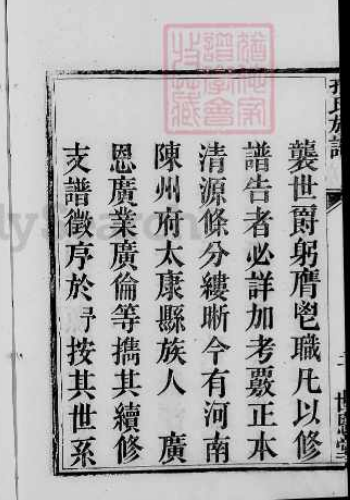 襲世爵躬膺鬯職凡以修
譜告者必詳加考覈正本
清源條分縷晰今有河南
陳州府太康縣族人　廣
恩廣業廣倫等攜其續修
支譜徵序於予按其世系
氏族譜